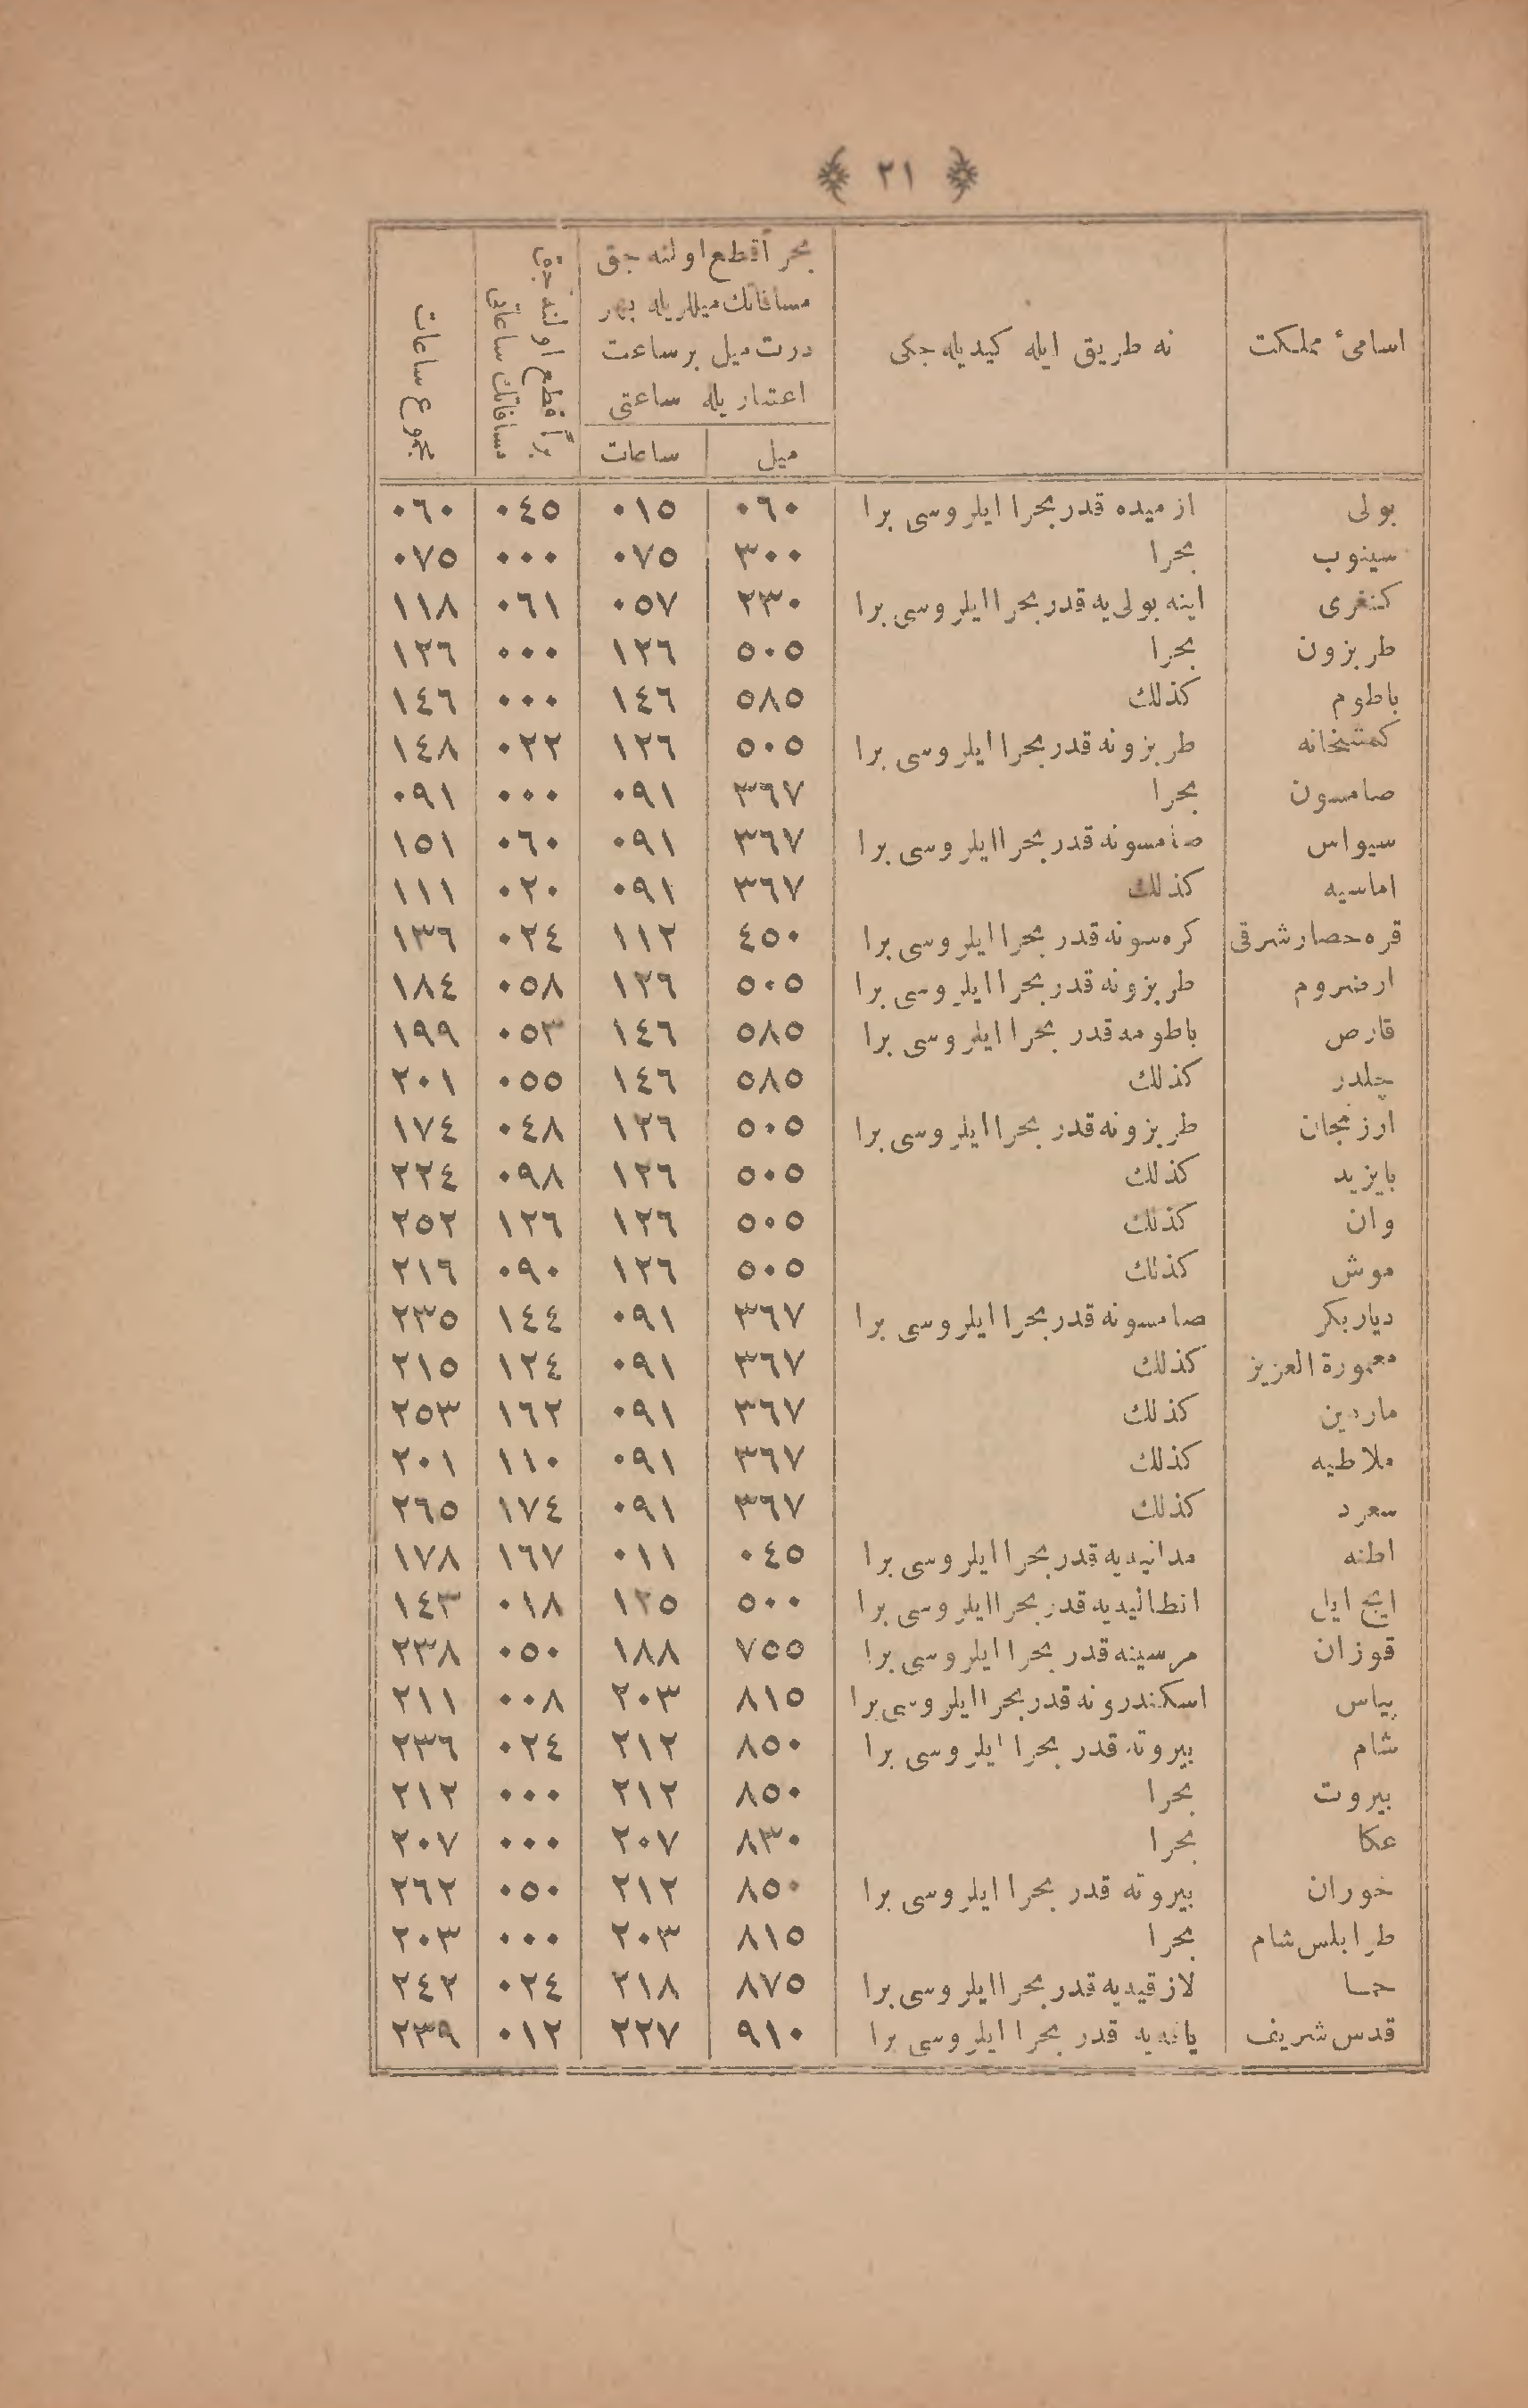 ﴿ ٢١ ﴾
اسامئ مملكت
نه طريق ايله كيديله جكى
بحراً قطع اولنه جق
مسافاتك ميللريله بهر
درت ميل بر ساعت
اعتباريله ساعتى
ميل ساعات
براً قطع اولنه جق
مسافاتك ساعاتى
مجموع ساعات
بولى ازميده قدر بحرا ايلروسى برا ٠٦٠ ٠١٥ ٠٤٥ ٠٦٠
سينوب بحرا ٣٠٠ ٠٧٥ ٠٠٠ ٠٧٥
كنغرى اينه بولى يه قدر بحرا ايلروسى برا ٢٣٠ ٠٥٧ ٠٦١ ١١٨
طربزون بحرا ٥٠٥ ١٢٦ ٠٠٠ ١٢٦
باطوم كذلك ٥٨٥ ١٤٦ ٠٠٠ ١٤٦
كمشخانه طربزونه قدر بحرا ايلروسى برا ٥٠٥ ١٢٦ ٠٢٢ ١٤٨
صامسون بحرا ٣٦٧ ٠٩١ ٠٠٠ ٠٩١
سيواس صامسونه قدر بحرا ايلروسى برا ٣٦٧ ٠٩١ ٠٦٠ ١٥١
اماسيه كذلك ٣٦٧ ٠٩١ ٠٢٠ ١١١
قره حصار شرقى كره سونه قدر بحرا ايلروسى برا ٤٥٠ ١١٢ ٠٢٤ ١٣٦
ارضروم طربزونه قدر بحرا ايلروسى برا ٥٠٥ ١٢٦ ٠٥٨ ١٨٤
قارص باطومه قدر بحرا ايلروسى برا ٥٨٥ ١٤٦ ٠٥٣ ١٩٩
چلدر كذلك ٥٨٥ ١٤٦ ٠٥٥ ٢٠١
ارزنجان طربزونه قدر بحرا ايلروسى برا ٥٠٥ ١٢٦ ٠٤٨ ١٧٤
بايزيد كذلك ٥٠٥ ١٢٦ ٠٩٨ ٢٢٤
وان كذلك ٥٠٥ ١٢٦ ١٢٦ ٢٥٢
موش كذلك ٥٠٥ ١٢٦ ٠٩٠ ٢١٦
دياربكر صامسونه قدر بحرا ايلروسى برا ٣٦٧ ٠٩١ ١٤٤ ٢٣٥
معمورة العزيز كذلك ٣٦٧ ٠٩١ ١٢٤ ٢١٥
ماردين كذلك ٣٦٧ ٠٩١ ١٦٢ ٢٥٣
ملاطيه كذلك ٣٦٧ ٠٩١ ١١٠ ٢٠١
سعرد كذلك ٣٦٧ ٠٩١ ١٧٤ ٢٦٥
اطنه مدانيه يه قدر بحرا ايلروسى برا ٠٤٥ ٠١١ ١٦٧ ١٧٨
ايچ ايل انطاليه يه قدر بحرا ايلروسى برا ٥٠٠ ١٢٥ ٠١٨ ١٤٣
قوزان مرسينه قدر بحرا ايلروسى برا ٧٥٥ ١٨٨ ٠٥٠ ٢٣٨
پياس اسكندرونه قدر بحرا ايلروسى برا ٨١٥ ٢٠٣ ٠٠٨ ٢١١
شام بيروته قدر بحرا ايلروسى برا ٨٥٠ ٢١٢ ٠٢٤ ٢٣٦
بيروت بحرا ٨٥٠ ٢١٢ ٠٠٠ ٢١٢
عكا بحرا ٨٣٠ ٢٠٧ ٠٠٠ ٢٠٧
خوران بيروته قدر بحرا ايلروسى برا ٨٥٠ ٢١٢ ٠٥٠ ٢٦٢
طرابلس شام بحرا ٨١٥ ٢٠٣ ٠٠٠ ٢٠٣
حما لازقيه يه قدر بحرا ايلروسى برا ٨٧٥ ٢١٨ ٠٢٤ ٢٤٢
قدس شريف يافه يه قدر بحرا ايلروسى برا ٩١٠ ٢٢٧ ٠١٢ ٢٣٩